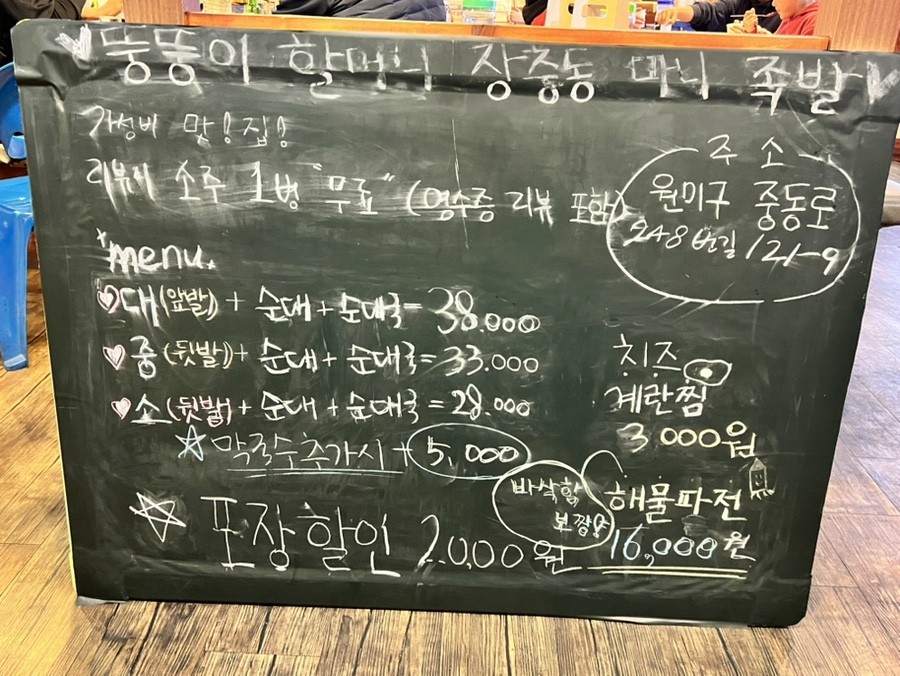 뚱뚱이 할머니 장충동 마니 족발
가성비 맛! 집!
리뷰시 소주 1병 "무료" (영수증 리뷰 포함)
주소
원미구 중동로
248번길 121-9
menu
대(앞발) + 순대 + 순대국 = 38.000
중(뒷발) + 순대 + 순대국 = 33.000
소(뒷발) + 순대 + 순대국 = 28.000
막국수추가시 + 5,000
포장할인 2.000원
치즈
계란찜
3000원
바삭함
보장!
해물파전
16,000원